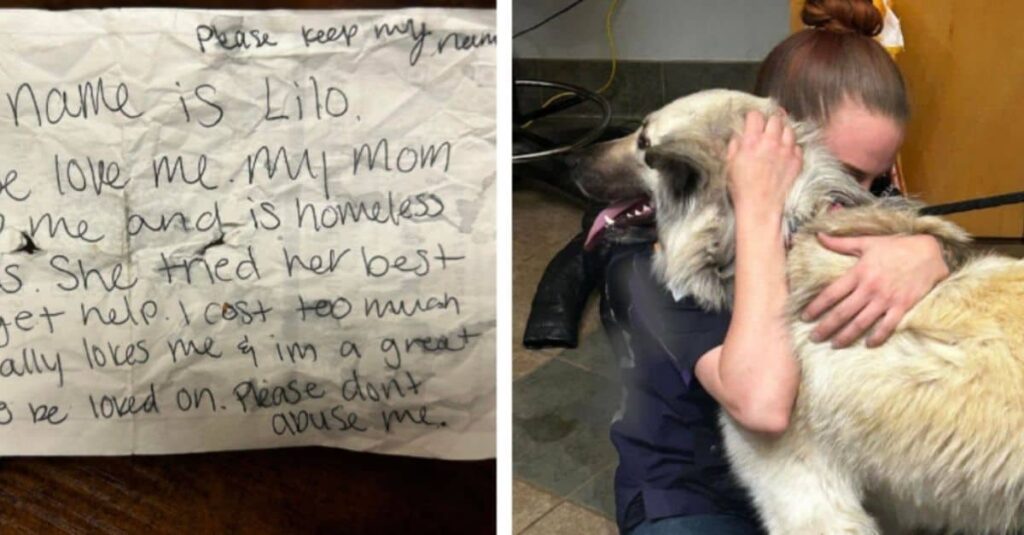 Please keep my nam
name is Lilo.
e love me. My Mom
me and is homeless
s. She tried her best
get help. I cost too much
ally loves me & im a great
o be loved on. Please dont
abuse me.